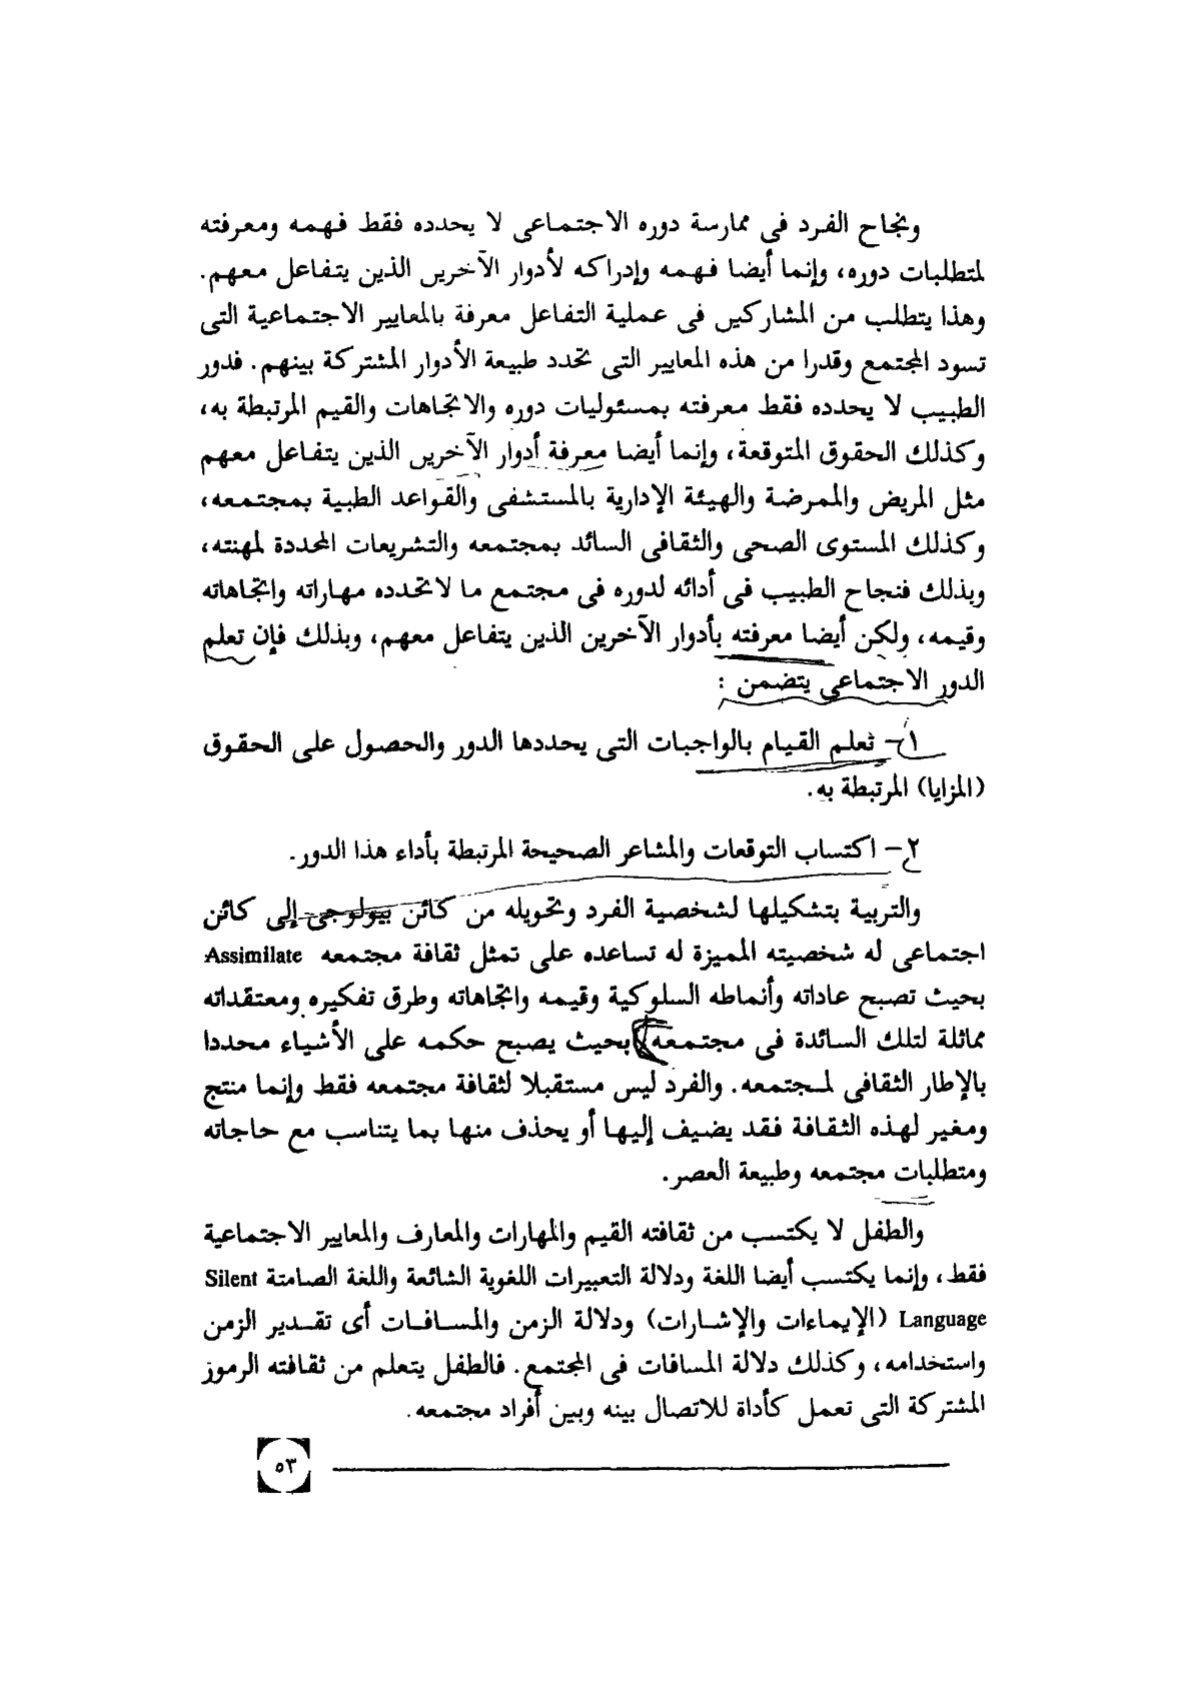 ونجاح الفرد فى ممارسة دوره الاجتماعى لا يحدده فقط فهمه ومعرفته
لمتطلبات دوره، وإنما أيضا فهمه وإدراكه لأدوار الآخرين الذين يتفاعل معهم.
وهذا يتطلب من المشاركين فى عملية التفاعل معرفة بالمعايير الاجتماعية التى
تسود المجتمع وقدرا من هذه المعايير التى تحدد طبيعة الأدوار المشتركة بينهم. فدور
الطبيب لا يحدده فقط معرفته بمسئوليات دوره والاتجاهات والقيم المرتبطة به،
وكذلك الحقوق المتوقعة، وإنما أيضا معرفة أدوار الآخرين الذين يتفاعل معهم
مثل المريض والممرضة والهيئة الإدارية بالمستشفى والقواعد الطبية بمجتمعه،
وكذلك المستوى الصحى والثقافى السائد بمجتمعه والتشريعات المحددة لمهنته،
وبذلك فنجاح الطبيب فى أدائه لدوره فى مجتمع ما لاتحدده مهاراته واتجاهاته
وقيمه، ولكن أيضا معرفته بأدوار الآخرين الذين يتفاعل معهم، وبذلك فإن تعلم
الدور الاجتماعى يتضمن :
١- تعلم القيام بالواجبات التى يحددها الدور والحصول على الحقوق
(المزايا) المرتبطة به.
٢- اكتساب التوقعات والمشاعر الصحيحة المرتبطة بأداء هذا الدور.
والتربية بتشكيلها لشخصية الفرد وتحويله من كائن بيولوجى إلى كائن
اجتماعى له شخصيته المميزة له تساعده على تمثل ثقافة مجتمعه Assimilate
بحيث تصبح عاداته وأنماطه السلوكية وقيمه واتجاهاته وطرق تفكيره ومعتقداته
مماثلة لتلك السائدة فى مجتمعه بحيث يصبح حكمه على الأشياء محددا
بالإطار الثقافى لمجتمعه. والفرد ليس مستقبلا لثقافة مجتمعه فقط وإنما منتج
ومغير لهذه الثقافة فقد يضيف إليها أو يحذف منها بما يتناسب مع حاجاته
ومتطلبات مجتمعه وطبيعة العصر.
والطفل لا يكتسب من ثقافته القيم والمهارات والمعارف والمعايير الاجتماعية
فقط، وإنما يكتسب أيضا اللغة ودلالة التعبيرات اللغوية الشائعة واللغة الصامتة Silent
Language (الإيماءات والإشارات) ودلالة الزمن والمسافات أى تقدير الزمن
واستخدامه، وكذلك دلالة المسافات فى المجتمع. فالطفل يتعلم من ثقافته الرموز
المشتركة التى تعمل كأداة للاتصال بينه وبين أفراد مجتمعه.
٥٣